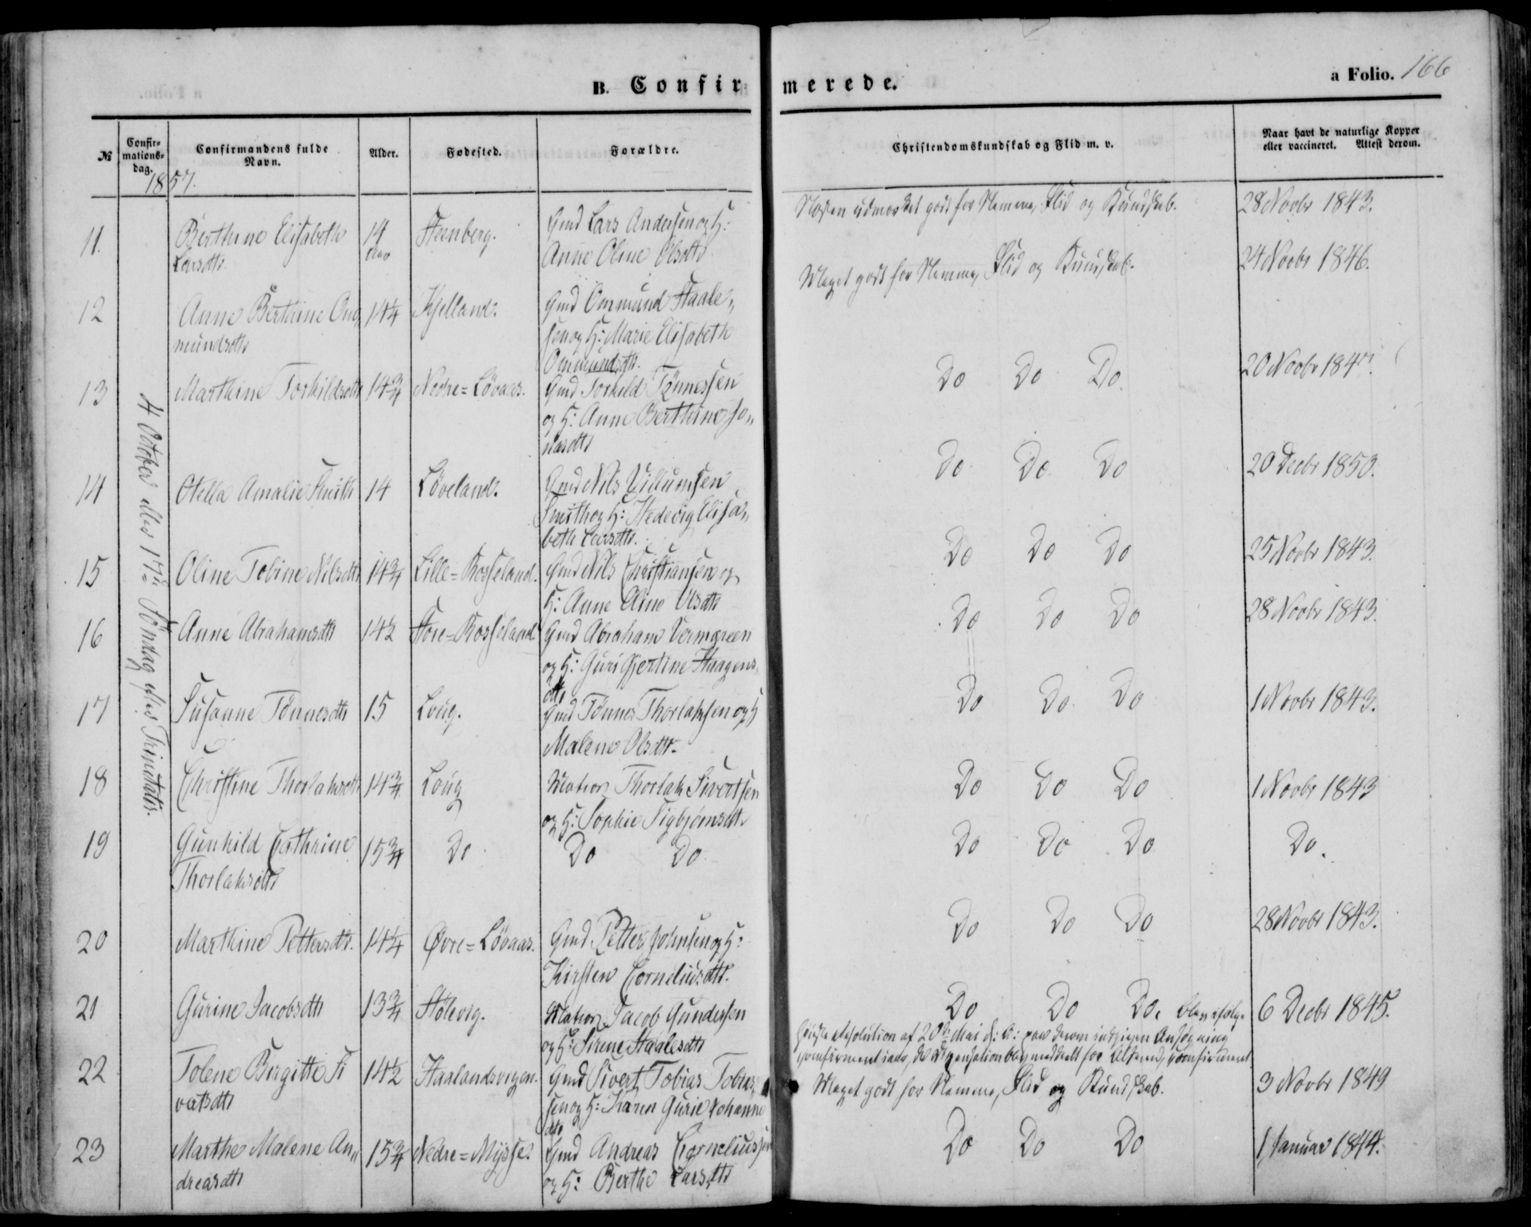 B. Confirmerede.
a Folio. 166
№ Confirmations-dag. Confirmandens fulde Navn. Alder. Fødested. Forældre. Christendomskundskab og Flid m. v. Naar havt de naturlige Kopper eller vaccineret. Attest derom.
1857.
4 October 17de Søndag efter Trinitatis.
11. Berthine Elisabeth 14 Steenberg. Gmd Lars Andersen og H: Næsten udmærket godt for Nemme, Flid og Kundskab. 28 Novbr 1843.
Larsdtr Anne Oline Olsdtr
12 Anne Berthine Om- 14 1/4 Kjelland. Gmd Ommund Staale- Meget godt for Nemme, Flid og Kundskab. 24 Novbr 1846.
mundsdtr sen og H: Marie Elisabeth
Ommundsdtr.
13 Marthine Torkildsdtr 14 3/4 Nedre=Løvaas. Gmd Torkild Tønnessen Do Do Do 20 Novbr 1847.
og H: Anne Berthine Jo-
nasdtr
14 Otella Amalie Smith 14 Løveland. Gmd Nils Villumsen Do Do Do 20 Decbr 1850.
Smith og H: Hedevig Elisa-
beth Larsdtr.
15 Oline Tobine Nilsdtr 14 3/4 Lille=Rosseland. Gmd Nils Christiansen og Do Do Do 25 Novbr 1843.
H: Anne Oline Olsdtr
16 Anne Abrahamsdtr 14 1/2 Store=Rosseland Gmd Abraham Vermgreen Do Do Do 28 Novbr 1843.
og H: Guri Gjertine Haagens-
dtr
17 Susanne Tønnesdtr 15 Loug. Gmd Tønnes Thorlaksen og H Do Do Do 1 Novbr 1843.
Malene Olsdtr.
18 Christine Thorlaksdtr 14 3/4 Loug Matros Thorlak Sivertsen Do Do Do 1 Novbr 1843
og H: Sophie Sigbjørnsdtr
19 Gunhild Cathrine 15 3/4 Do Do Do Do Do Do Do.
Thorlaksdtr
20 Marthine Pettersdtr. 14 1/4 Øvre=Løvaas. Gmd Petter Johnsen og H: Do Do Do 28 Novbr 1843.
Kirsten Corneliusdtr.
21 Gurine Jacobsdtr 13 3/4 Stølevig. Matros Jacob Gundersen Do Do Do, blev ifølge 6 Decbr 1845.
og H: Sirene Staalesdtr Resolution af 20de Mai
22 Tolene Birgitte Si- 14 1/2 Haalandsvigen. Gmd Sivert Tobias Tobias- Meget godt for Nemme, Flid og Kundskab. 3 Novbr 1849
vertsdtr sen og H: Karen Gurie Johanne
dtr
23 Marthe Malene An- 15 3/4 Nedre=Mysse. Gmd Andreas Corneliussen Do Do Do 1 Januar 1844.
dreasdtr og H: Berthe Larsdtr